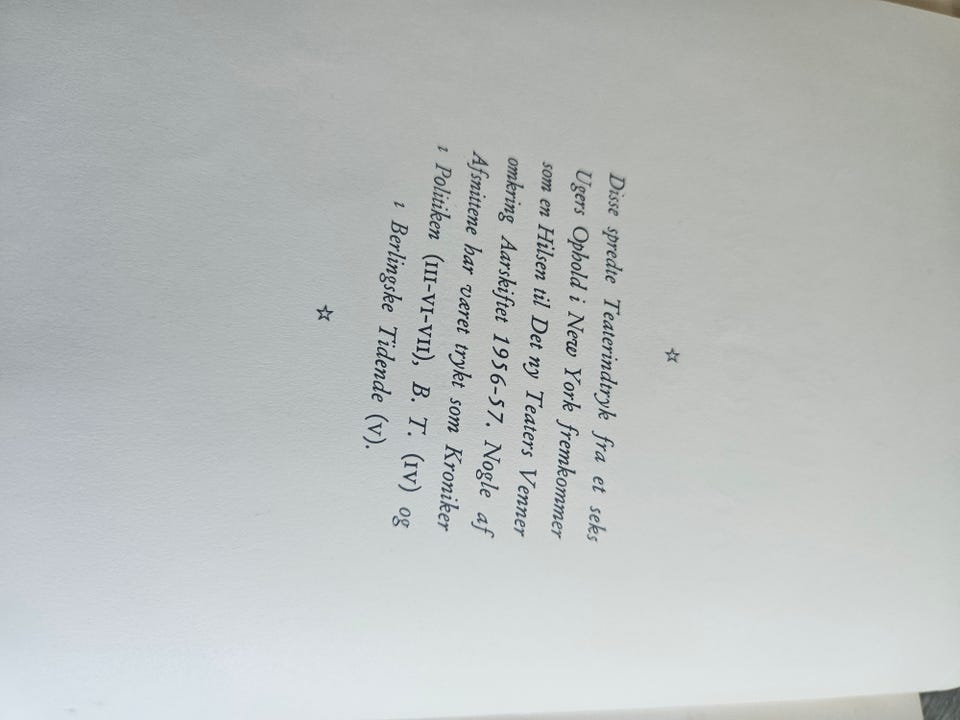 ☆
Disse spredte Teaterindtryk fra et seks
Ugers Ophold i New York fremkommer
som en Hilsen til Det ny Teaters Venner
omkring Aarskiftet 1956-57. Nogle af
Afsnittene har været trykt som Kroniker
i Politiken (III-VI-VII), B. T. (IV) og
i Berlingske Tidende (V).
☆